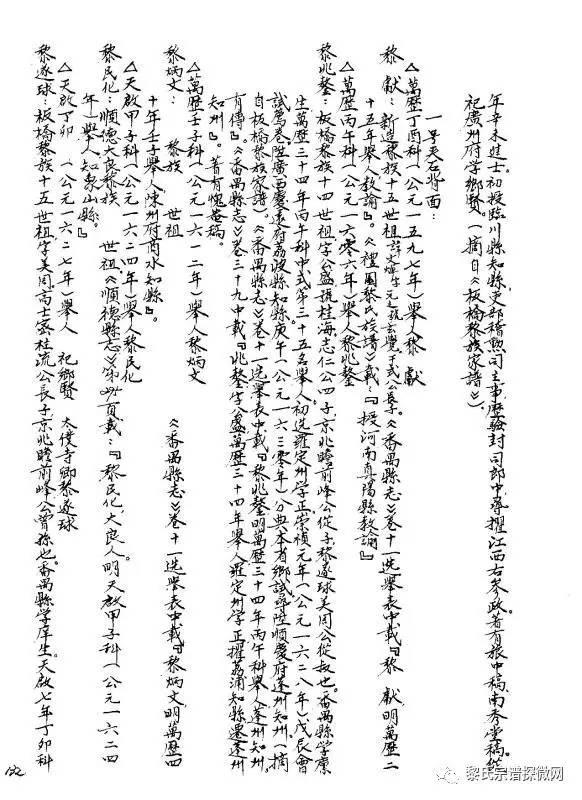 年辛未進士。初授臨川縣知縣吏部稽勲司主事歷驗封司郎中尋擢江西右參政著有旅中稿南秀堂稿祀
祀廣州府学鄉賢。(摘自《板橋黎族家譜》)。
一号天石將面:
△萬歷丁酉科(公元一五九七年)舉人黎 獻
黎 獻:新造黎族十五世祖 公長子。《番禺縣志》卷十一选舉表中載『黎 獻明萬歷二
十五年舉人教諭』。《禮園黎氏族譜》載:『授河南真陽縣教諭』
△萬歷丙午科(公元一六零六年)舉人黎兆鏊
黎兆鏊:板橋黎族十四世祖字公盛號桂海志仁公四子京兆瞻前峰公從子黎遂球美周公從叔也。番禺縣学廪
生萬歷三十四年丙午科中式第三十五名舉人初选羅定州学正崇禎元年(公元一六二八年)戊辰會
試薦卷陞廣西慶遠府荔波縣知縣庚午(公元一六三零年)分典本省鄉試尋陞順慶府蓬州知州。(摘
自板橋黎族家譜)。《番禺縣志》卷十一选舉表中載『黎兆鏊明萬歷三十四年丙午科舉人蓬州知州。
有傳』。《番禺縣志》卷三十九中載『兆鏊字公盛萬歷三十四年舉人羅定州学正擢荔浦知縣遷蓬州
知州』。著有愧菴稿。
△萬歷壬子科(公元一六一二年)舉人黎炳文
黎炳文: 黎族 世祖 《番禺縣志》卷十一选舉表中載『黎炳文明萬歷四
十年壬子舉人陳州府商水知縣』。
△天啟甲子科(公元一六二四年)舉人黎民化
黎民化:順德大良黎族 世祖《順德縣志》第 頁載:『黎民化大良人明天啟甲子科(公元一六二四
年)舉人知象山縣。』
△天啟丁卯 (公元一六二七年)舉人 祀鄉賢 太僕寺卿黎遂球
黎遂球:板橋黎族十五世祖字美周高士密柱流公長子京兆瞻前峰公曾孫也。番禺縣学庠生。天啟七年丁卯科
132
黎氏宗谱探微网